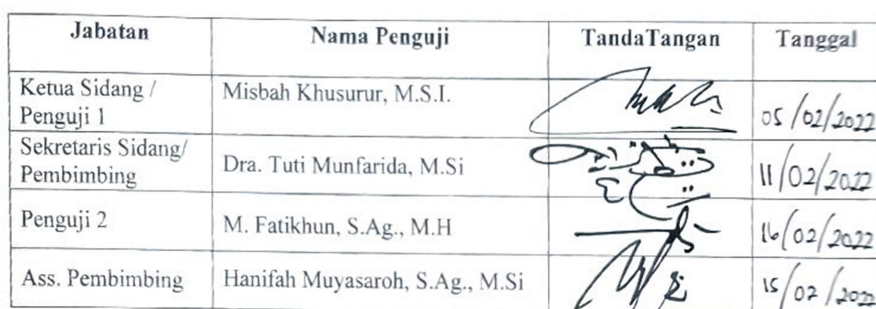 Jabatan Nama Penguji TandaTangan Tanggal
Ketua Sidang / Misbah Khusurur, M.S.I. 05/02/2022
Penguji 1
Sekretaris Sidang/ Dra. Tuti Munfarida, M.Si 11/02/2022
Pembimbing
Penguji 2 M. Fatikhun, S.Ag., M.H 16/02/2022
Ass. Pembimbing Hanifah Muyasaroh, S.Ag., M.Si 15/02/2022